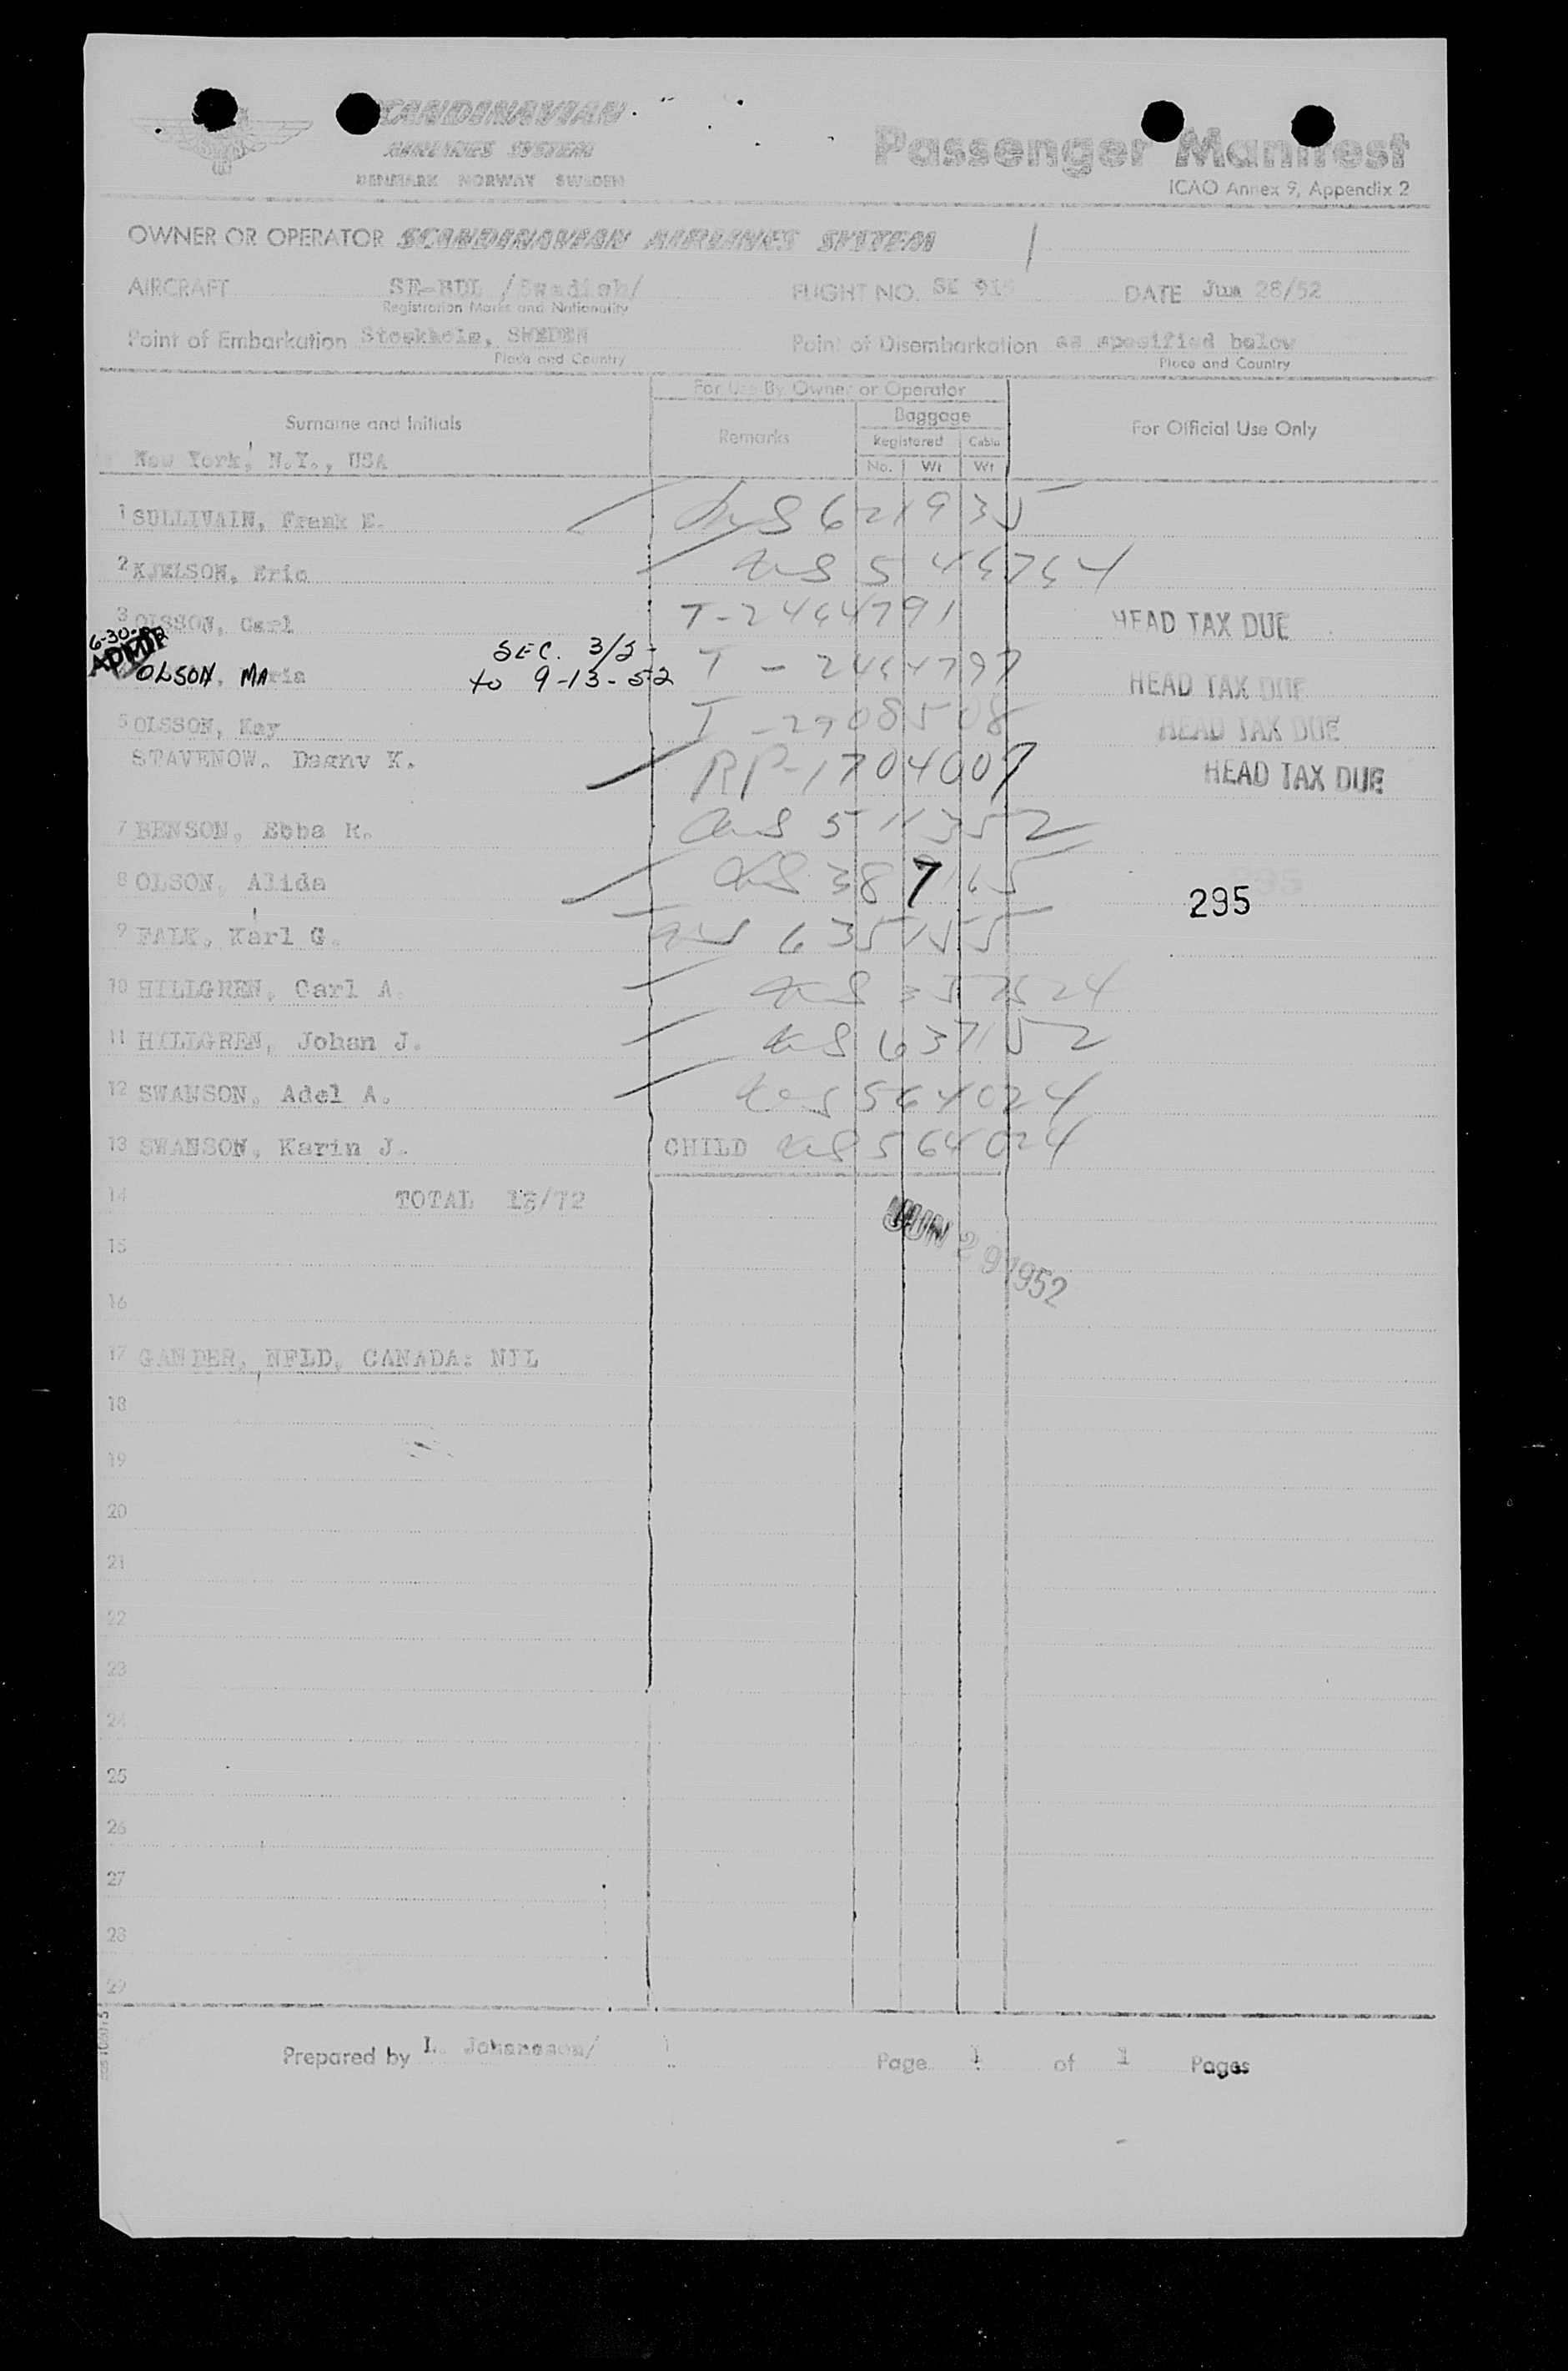 SCANDINAVIAN
AIRLINES SYSTEM
DENMARK NORWAY SWEDEN
Passenger Manifest
ICAO Annex 9, Appendix 2
OWNER OR OPERATOR SCANDINAVIAN AIRLINES SYSTEM
AIRCRAFT SE-BDL /Swedish/ FLIGHT NO. SK DATE Jun 28/52
Registration Marks and Nationality
Point of Embarkation Stockholm, SWEDEN Point of Disembarkation as specified below
Place and Country Place and Country
For Use By Owner or Operator
Surname and Initials Remarks Baggage For Official Use Only
Registered Cabin
No. Wt Wt
New York, N.Y., USA
1 SULLIVAIN, Frank E. 621935
2 KJELSON, Eric
3 OLSSON, Carl T-2464791 HEAD TAX DUE
6-30-52
ADMIT
SEC. 3/2 -
OLSON, MAria to 9-13-52 T-2464797 HEAD TAX DUE
5 OLSSON, Kay T-2908508 HEAD TAX DUE
STAVENOW, Dagny K. RP-1704007 HEAD TAX DUE
7 BENSON, Ebba R. 511352
8 OLSON, Alida 387165
295
9 FALK, Karl G. 635155
10 HILLGREN, Carl A.
11 HILLGREN, Johan J. 637152
12 SWANSON, Adel A. 564024
13 SWANSON, Karin J. CHILD 564024
14 TOTAL 13/72
JUN 29 1952
15
16
17 GANDER, NFLD, CANADA: NIL
18
19
20
21
22
23
24
25
26
27
28
29
Prepared by L. Johansson/ Page 1 of 1 Pages